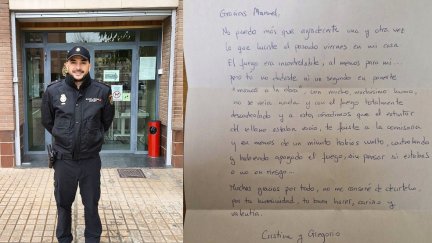 Gracias Manuel,
No puedo más que agradecerte una y otra vez
lo que hiciste el pasado viernes en mi casa.
El fuego era incontrolable, al menos para mi...
pero tú no dudaste ni un segundo en ponerte
"manos a la obra" con mucho, muchísimo humo,
no se veía nada y con el fuego totalmente
descontrolado y a esto, añadimos que el extintor
del rellano estaba vacío, te fuiste a la comisaría
y en menos de un minuto habías vuelto, controlando
y habiendo apagado el fuego, sin pensar si estabas
o no en riesgo...
Muchas gracias por todo, no me cansaré de decírtelo,
por tu humanidad, tu buen hacer, cariño y
valentía.
Cristina y Gregorio